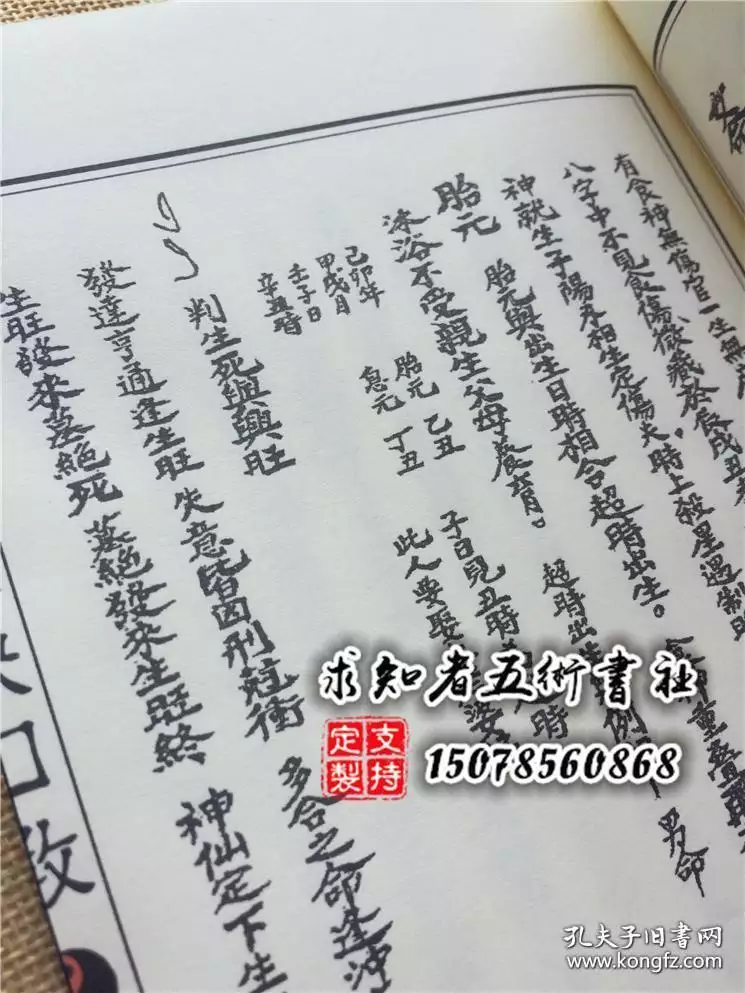 有食神無傷官一生無
八字中不見食傷微藏於辰戌丑
神就生子陽不相生定傷夫時上殺星遇制
食神重疊
男命
胎元 胎元與出生日時相合超時出生。
沐浴不受親生父母養育。 超時出 例
己卯年
甲戌月
壬子日
辛丑時
胎元 乙丑
息元 丁丑
子日見丑時
時
此人要娶 婆
判生死與興旺
發達亨通逢生旺 失意皆因刑尅衝 多合之命逢沖
生旺發來墓絕死 墓絕發來生旺終 神仙定下生
求知者五術書社
支持定製
15078560868
口
孔夫子旧書网
www.kongfz.com